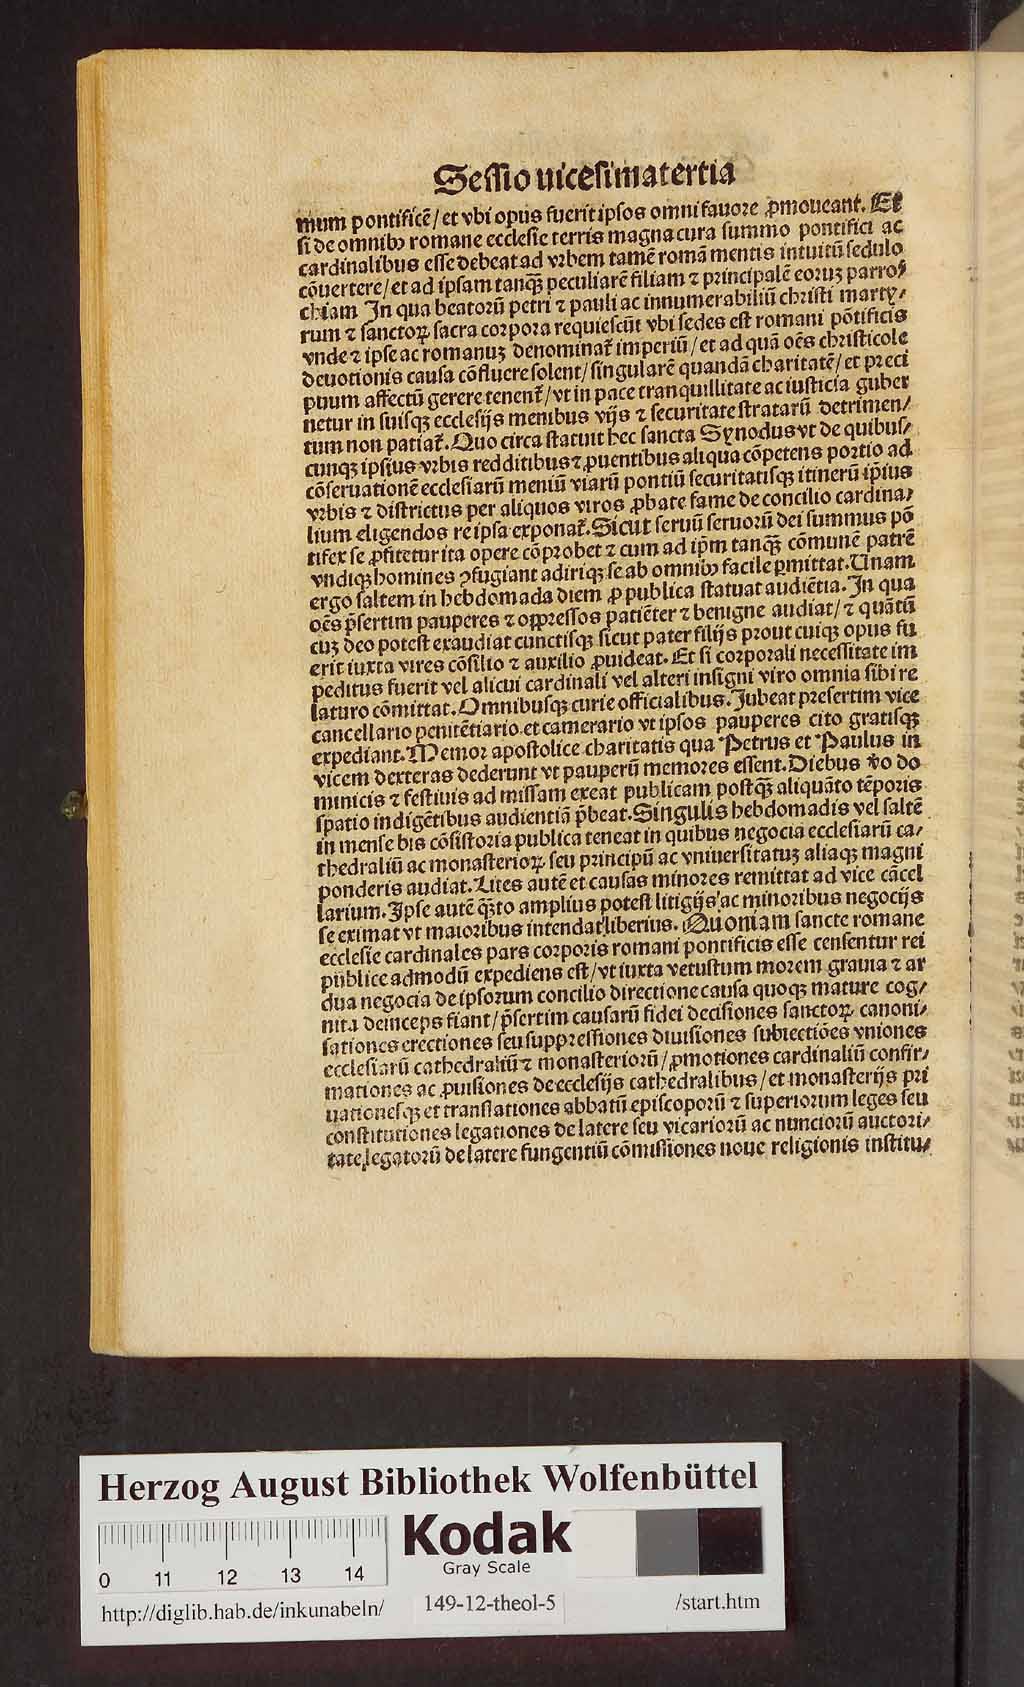 Sessio uicesimatertia
mum pontificē/ et vbi opus fuerit ipsos omni fauore ꝓmoueant. Et
si de omnibꝰ romane ecclesie terris magna cura summo pontifici ac
cardinalibus esse debeat ad vrbem tamē romā mentis intuitū sedulo
cōuertere/ et ad ipsam tanqꝫ peculiarē filiam ⁊ principalē eoruꝫ parro⸗
chiam In qua beatorū petri ⁊ pauli ac innumerabiliū christi marty⸗
rum ⁊ sanctoꝝ sacra corpora requiescūt vbi sedes est romani pōtificis
vnde ⁊ ipse ac romanuꝫ denominat᷑ imperiū/ et ad quā oēs christicole
deuotionis causa cōfluere solent/ singularē quandā charitatē/ et preci
puum affectū gerere tenent᷑/ vt in pace tranquillitate ac iusticia guber
netur in suisqꝫ ecclesijs menibus vijs ⁊ securitate stratarū detrimen⸗
tum non patiat᷑. Quo circa statuit hec sancta Synodus vt de quibus⸗
cunqꝫ ipsius vrbis redditibus ⁊ ꝓuentibus aliqua cōpetens portio ad
cōseruationē ecclesiarū meniū viarū pontiū securitatisqꝫ itinerū ip̄ius
vrbis ⁊ districtus per aliquos viros ꝓbate fame de concilio cardina⸗
lium eligendos re ipsa exponat᷑. Sicut seruū seruorū dei summus pō
tifex se ꝓfitetur ita opere cōprobet ⁊ cum ad ip̄m tanqꝫ cōmunē patrē
vndiqꝫ homines ꝯfugiant adiriqꝫ se ab omnibꝰ facile ꝑmittat. Unam
ergo saltem in hebdomada diem ꝓ publica statuat audiētia. In qua
oēs p̄sertim pauperes ⁊ oppressos patiēter ⁊ benigne audiat/ ⁊ quātū
cuꝫ deo potest exaudiat cunctisqꝫ sicut pater filijs prout cuiqꝫ opus fu
erit iuxta vires cōsilio ⁊ auxilio ꝓuideat. Et si corporali necessitate im
peditus fuerit vel alicui cardinali vel alteri insigni viro omnia sibi re
laturo cōmittat. Omnibusqꝫ curie officialibus. Jubeat presertim vice
cancellario penitētiario et camerario vt ipsos pauperes cito gratisqꝫ
expediant. Memor apostolice charitatis qua Petrus et Paulus in
vicem dexteras dederunt vt pauperū memores essent. Diebus v̄o do
minicis ⁊ festiuis ad missam exeat publicam postqꝫ aliquāto tēporis
spatio indigētibus audientiā p̄beat. Singulis hebdomadis vel saltē
in mense bis cōsistoria publica teneat in quibus negocia ecclesiarū ca⸗
thedraliū ac monasterioꝝ seu principū ac vniuersitatuꝫ aliaqꝫ magni
ponderis audiat. Lites autē et causas minores remittat ad vice cācel
larium. Ipse autē qꝫto amplius potest litigijs ac minoribus negocijs
se eximat vt maioribus intendat liberius. Quoniam sancte romane
ecclesie cardinales pars corporis romani pontificis esse censentur rei
publice admodū expediens est/ vt iuxta vetustum morem grauia ⁊ ar
dua negocia de ipsorum concilio directione causa quoqꝫ mature cog⸗
nita deinceps fiant/ p̄sertim causarū fidei decisiones sanctoꝝ canoni⸗
sationes erectiones seu suppressiones diuisiones subiectiōes vniones
ecclesiarū cathedraliū ⁊ monasteriorū/ ꝓmotiones cardinaliū confir⸗
mationes ac ꝓuisiones de ecclesijs cathedralibus/ et monasterijs pri
uationesqꝫ et translationes abbatū episcoporū ⁊ superiorum leges seu
constitutiones legationes de latere seu vicariorū ac nunciorū auctori⸗
tate legatorū de latere fungentiū cōmissiones noue religionis institu⸗
Herzog August Bibliothek Wolfenbüttel
Kodak
Gray Scale
0 11 12 13 14
http://diglib.hab.de/inkunabeln/ 149-12-theol-5 /start.htm